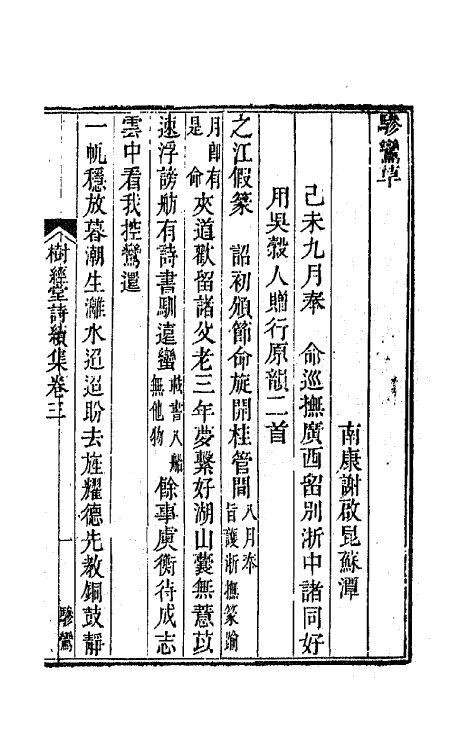 驂鸞草
南康謝啟昆蘇潭
己未九月奉　命巡撫廣西留別浙中諸同好
用吳穀人贈行原韻二首
之江假篆　詔初頒節命旋開桂管間八月奉旨護浙撫篆踰
月即有是　命夾道歡留諸父老三年夢繫好湖山囊無薏苡
速浮謗舫有詩書馴遠蠻載書八船無他物餘事虞衡待成志
雲中看我控鸞還
一帆穩放暮潮生灕水迢迢盼去旌耀德先教銅鼓靜
樹經堂詩續集卷三
一
驂鸞